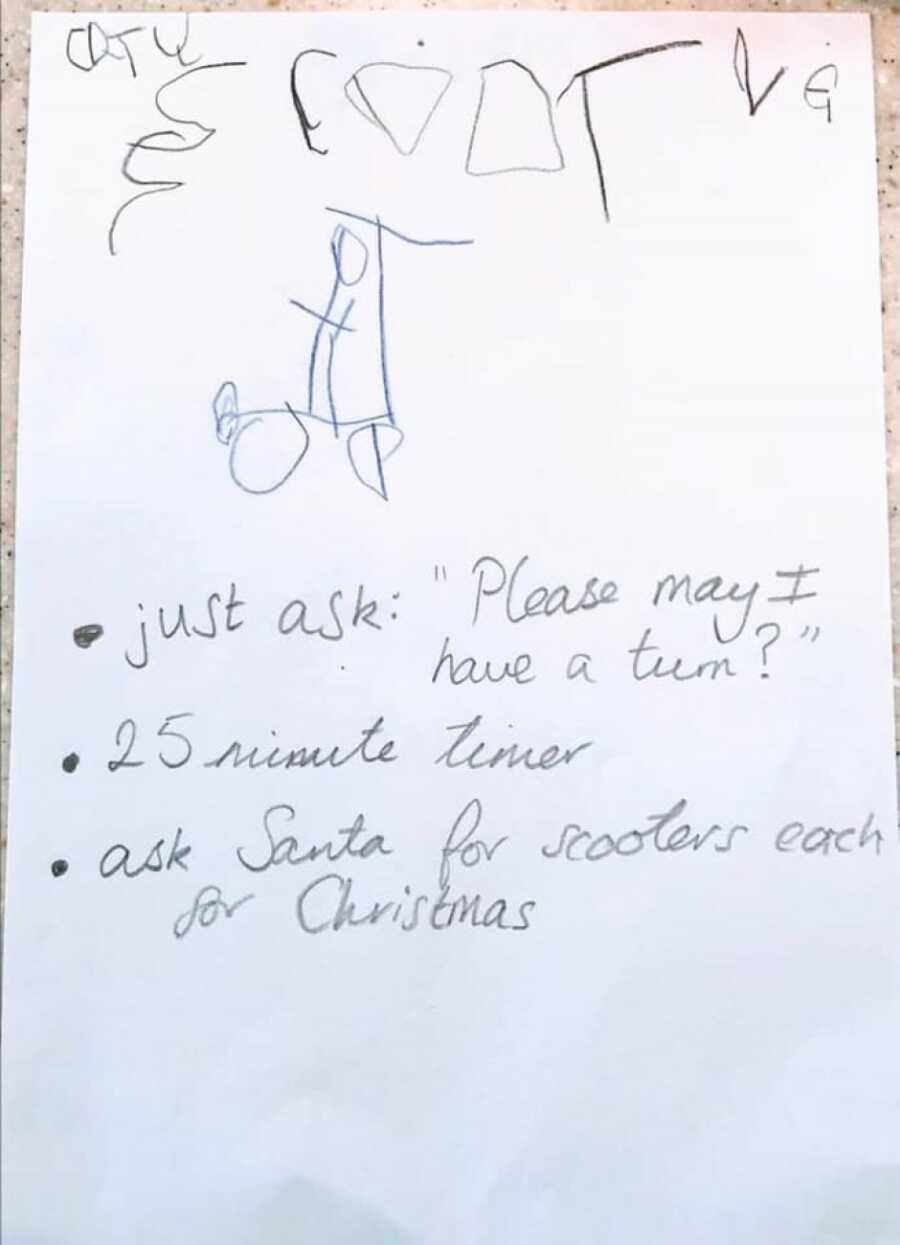 • just ask: "Please may I
have a turn?"
• 25 minute timer
• ask Santa for scooters each
for Christmas